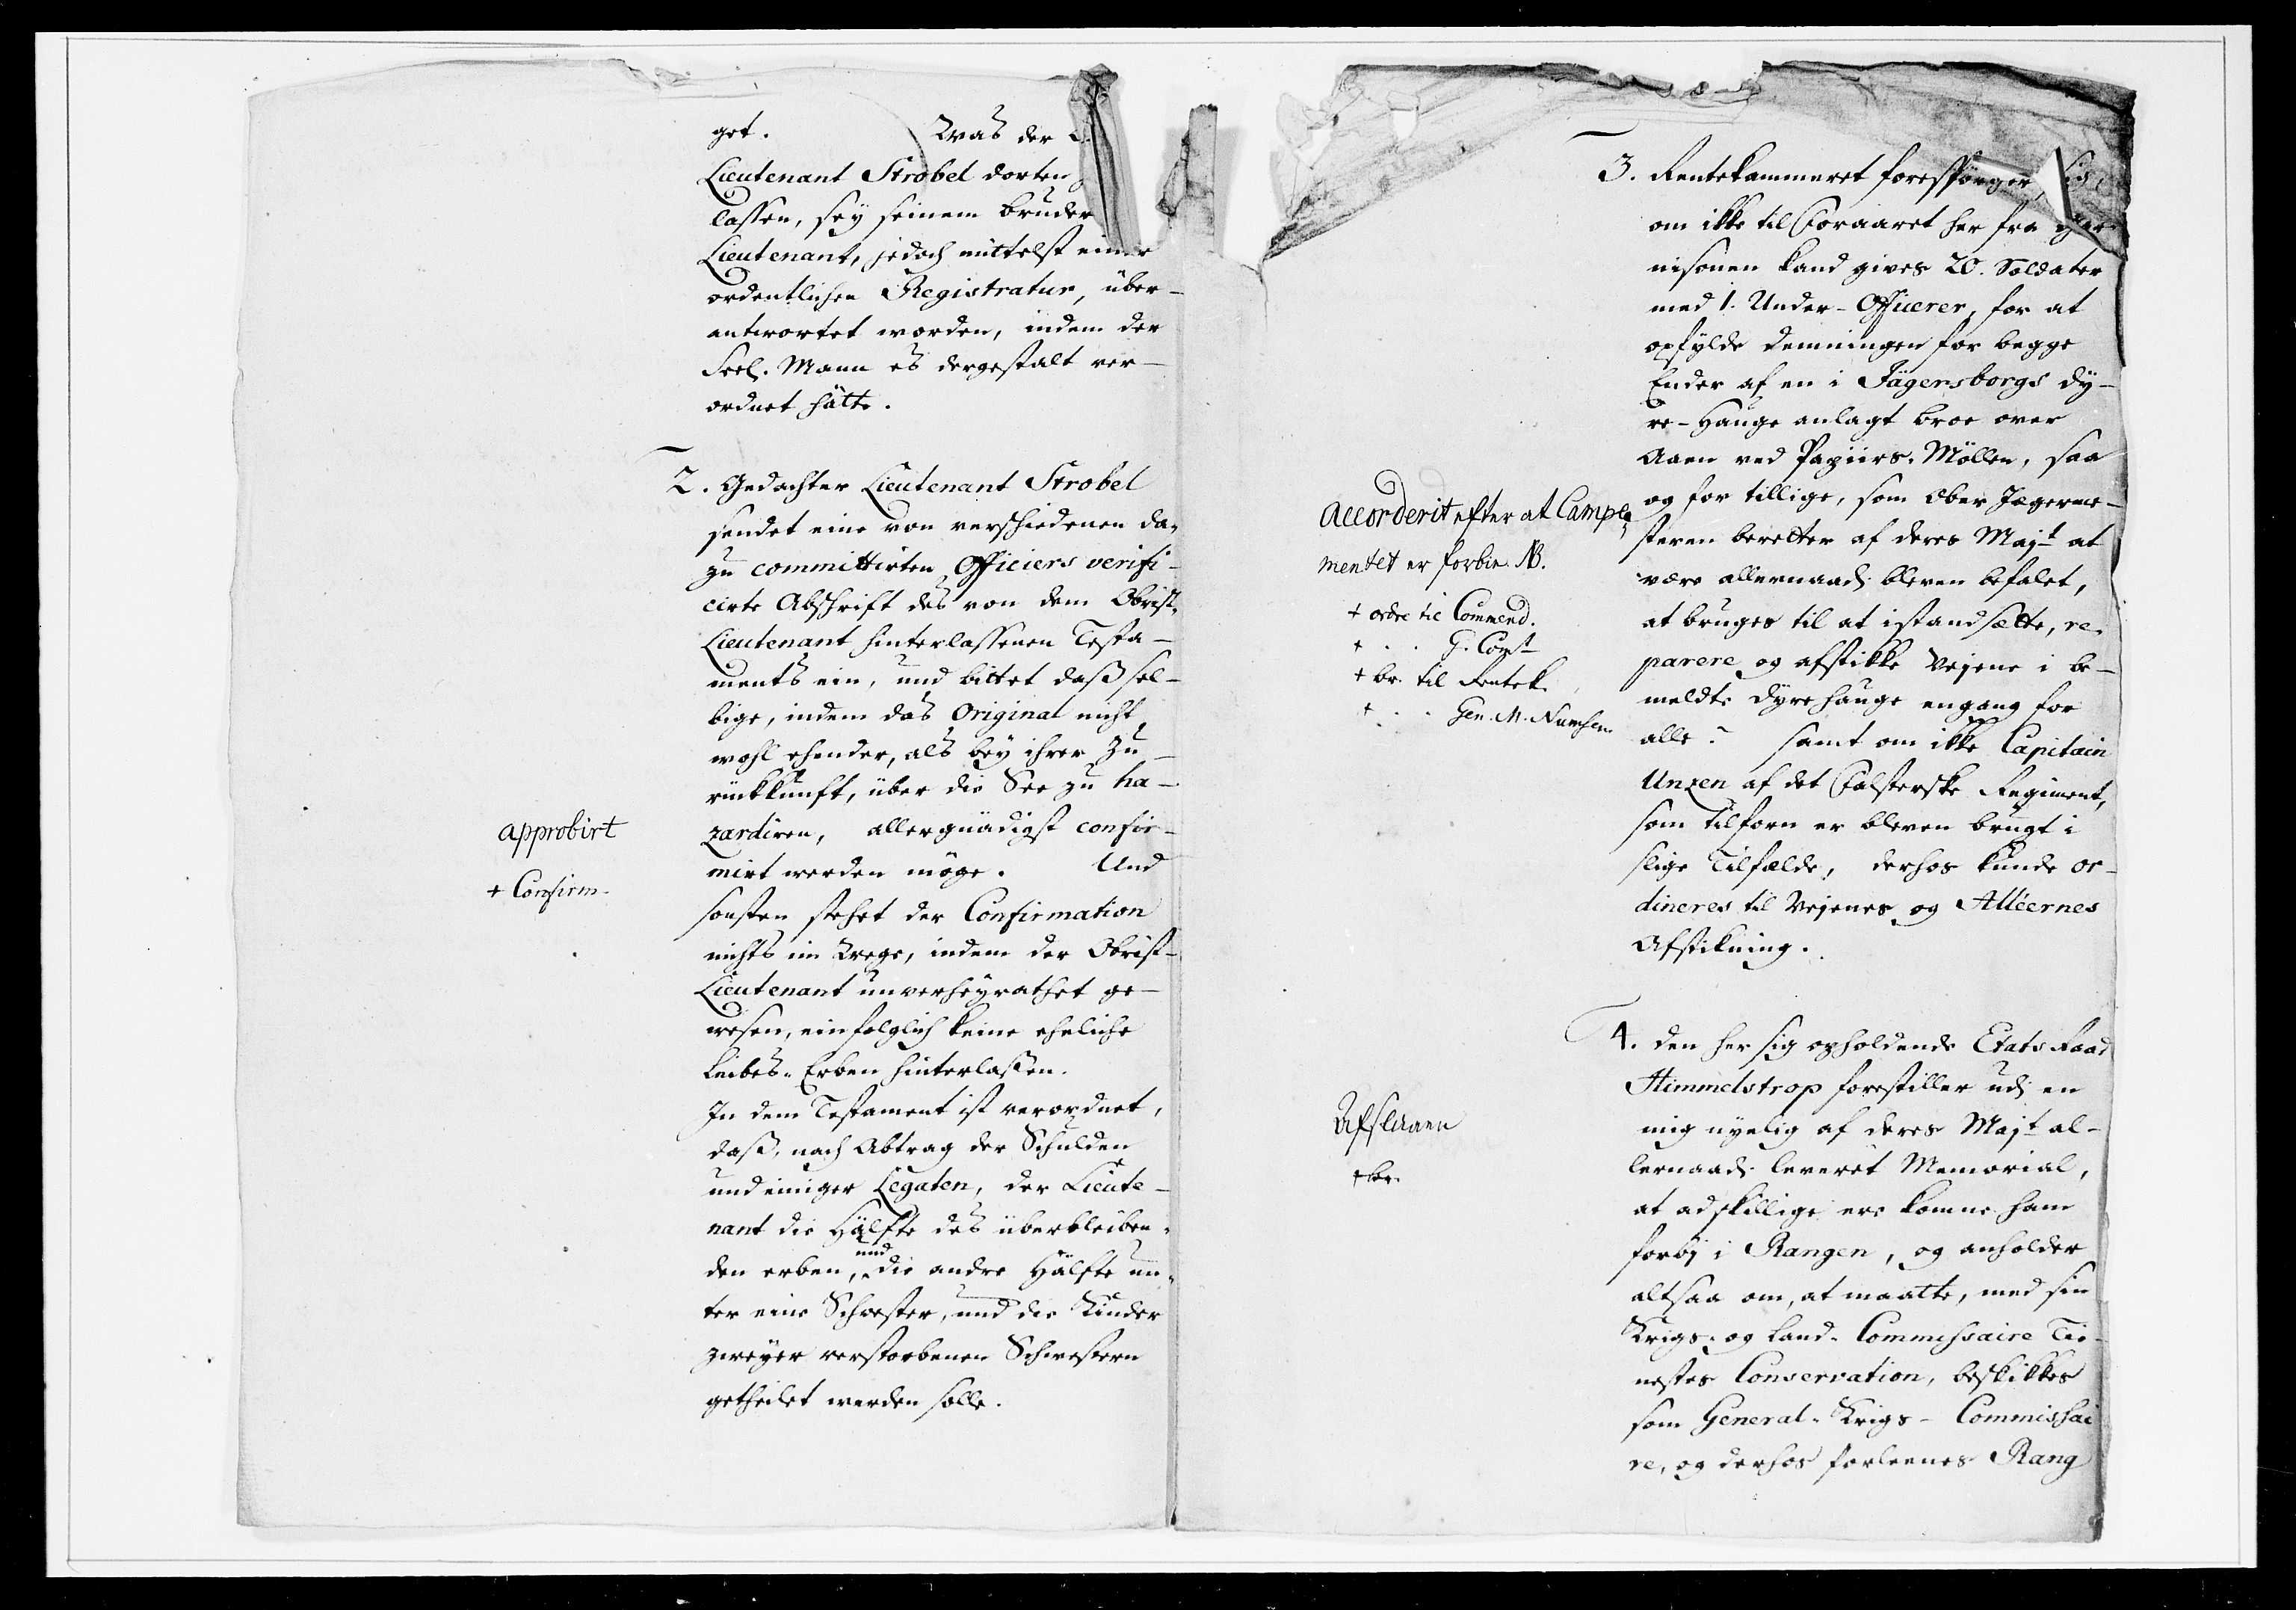 get. Was der
Lieutenant Strobel dorten
lassen, sey seinem bruder
Lieutenant, jedoch mittelst einer
ordentlichen Registratur, über-
antwortet worden, indem der
Seel. Mann es dergestalt ver-
ordnet hätte.
2. Gedachter Lieutenant Strobel
sendet eine von verschiedenen da-
zu committirten Officiers verifi-
cirte Abschrift des von dem Obrist-
Lieutenant hinterlassenen Testa-
ments ein, und bittet daß sel-
bige, indem das Original nicht
wohl ehender, als bey ihrer Zu-
rückkunft, über die See zu ha-
approbirt
zardiren, allergnädigst confir-
mirt werden möge. Und
+ Confirm.
sonsten stehet der Confirmation
nichts im Wege, indem der Obrist-
Lieutenant unverheyrathet ge-
wesen, einfolglich keine eheliche
Leibes-Erben hinterlaßen.
In dem Testament ist verordnet,
daß, nach Abtrag der Schulden
und einiger Legaten, der Lieute-
nant die Hälfte des überbleiben-
den erben, und die andre Hälfte un-
ter eine Schwester, und die Kinder
zweyer verstorbenen Schwestern
getheilet werden solle.
3. Rentekammeret forespörger sig,
om ikke til Foraaret her fra Gar-
nisonen kand gives 20. Soldater
med 1. Under-Officerer, for at
opfylde Demningen for begge
Ender af en i Jägersborgs Dy-
re-Hauge anlagt broe over
Aaen ved Papiirs-Möllen, saa
og for tillige, som Ober Jægerme-
steren beretter af deres Majt at
være allernaad. bleven befalet,
at bruges til at istandsette, re-
parere og afstikke Vejene i be-
meldte Dyrehauge engang for
alle? samt om ikke Capitain
Unzen af det Falsterske Regiment,
som tilforn er bleven brugt i
slige Tilfælde, derhos kunde or-
dineres til Vejenes og Alléernes
Afstikning.
Accorderit efter at Campe-
mentet er forbie. NB.
+ ordre til Commend.
+ . . G. Comt
+ br. til Rentek.
+ . . Gen. M. Numsen
4. Den her sig opholdende Etats Raad
Himmelstrop forestiller udj en
mig nyelig af deres Majt al-
lernaad. leveret Memorial,
at adskillige ere komne ham
forbj i Rangen, og anholder
altsaa om, at maatte, med sin
Krigs- og Land-Commissaire Tie-
nestes Conservation, beskikkes
som General-Krigs-Commissai
re, og derhos forleenes Rang
Afslaaen
+ br.